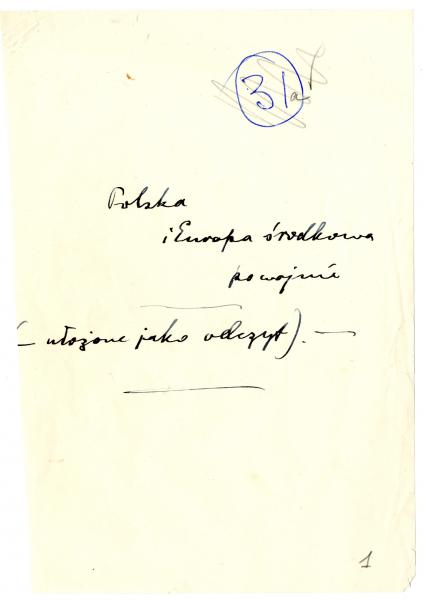 31
Polska
i Europa środkowa
po wojnie
(– ułożone jako odczyt). –
1